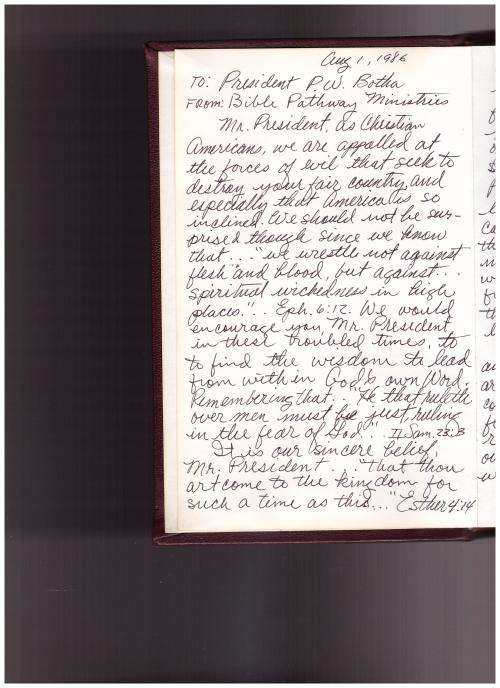 Aug 1, 1986
TO: President P.W. Botha
FROM: Bible Pathway Ministries
Mr. President, as Christian
Americans, we are appalled at
the forces of evil that seek to
destroy your fair country, and
especially that America is so
inclined. We should not be sur-
prised though since we know
that... "we wrestle not against
flesh and blood, but against...
spiritual wickedness in high
places."... Eph. 6:12. We would
encourage you, Mr. President,
in these troubled times, to
to find the wisdom to lead
from within God's own Word.
Remembering that... "He that ruleth
over men must be just, ruling
in the fear of God"... II Sam. 23:3
It is our sincere belief,
Mr. President... "that thou
art come to the kingdom for
such a time as this..." Esther 4:14